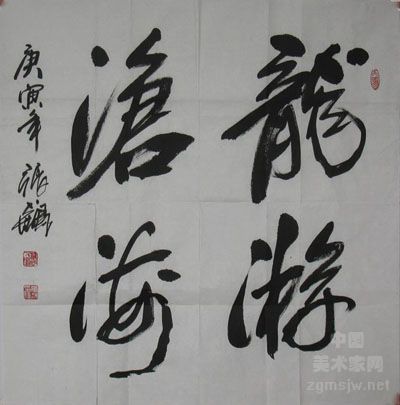 龍游
滄海
庚寅年
張
中国
美术家网
zgmsjw.net